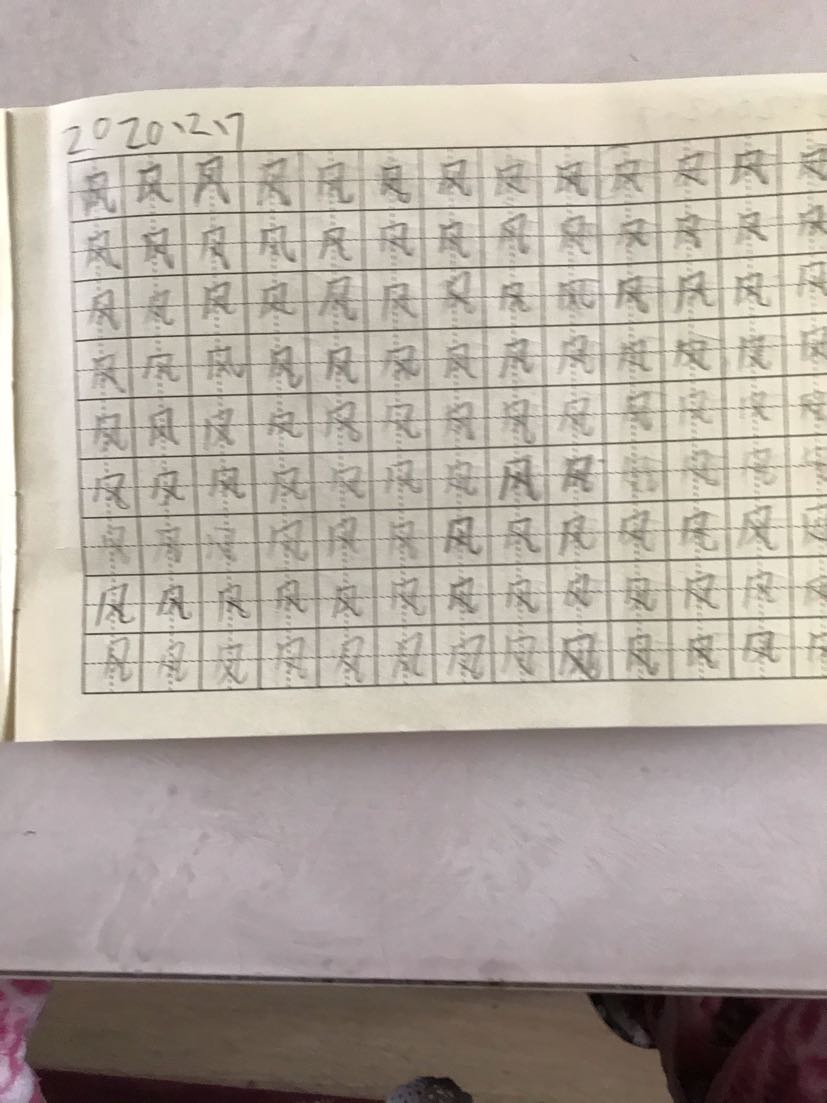 2020、2、7
风风风风风风风风风风风风风
风风风风风风风风风风风风风
风风风风风风风风风风风风风
风风风风风风风风风风风风风
风风风风风风风风风风风风风
风风风风风风风风风风风风风
风风风风风风风风风风风风风
风风风风风风风风风风风风风
风风风风风风风风风风风风风